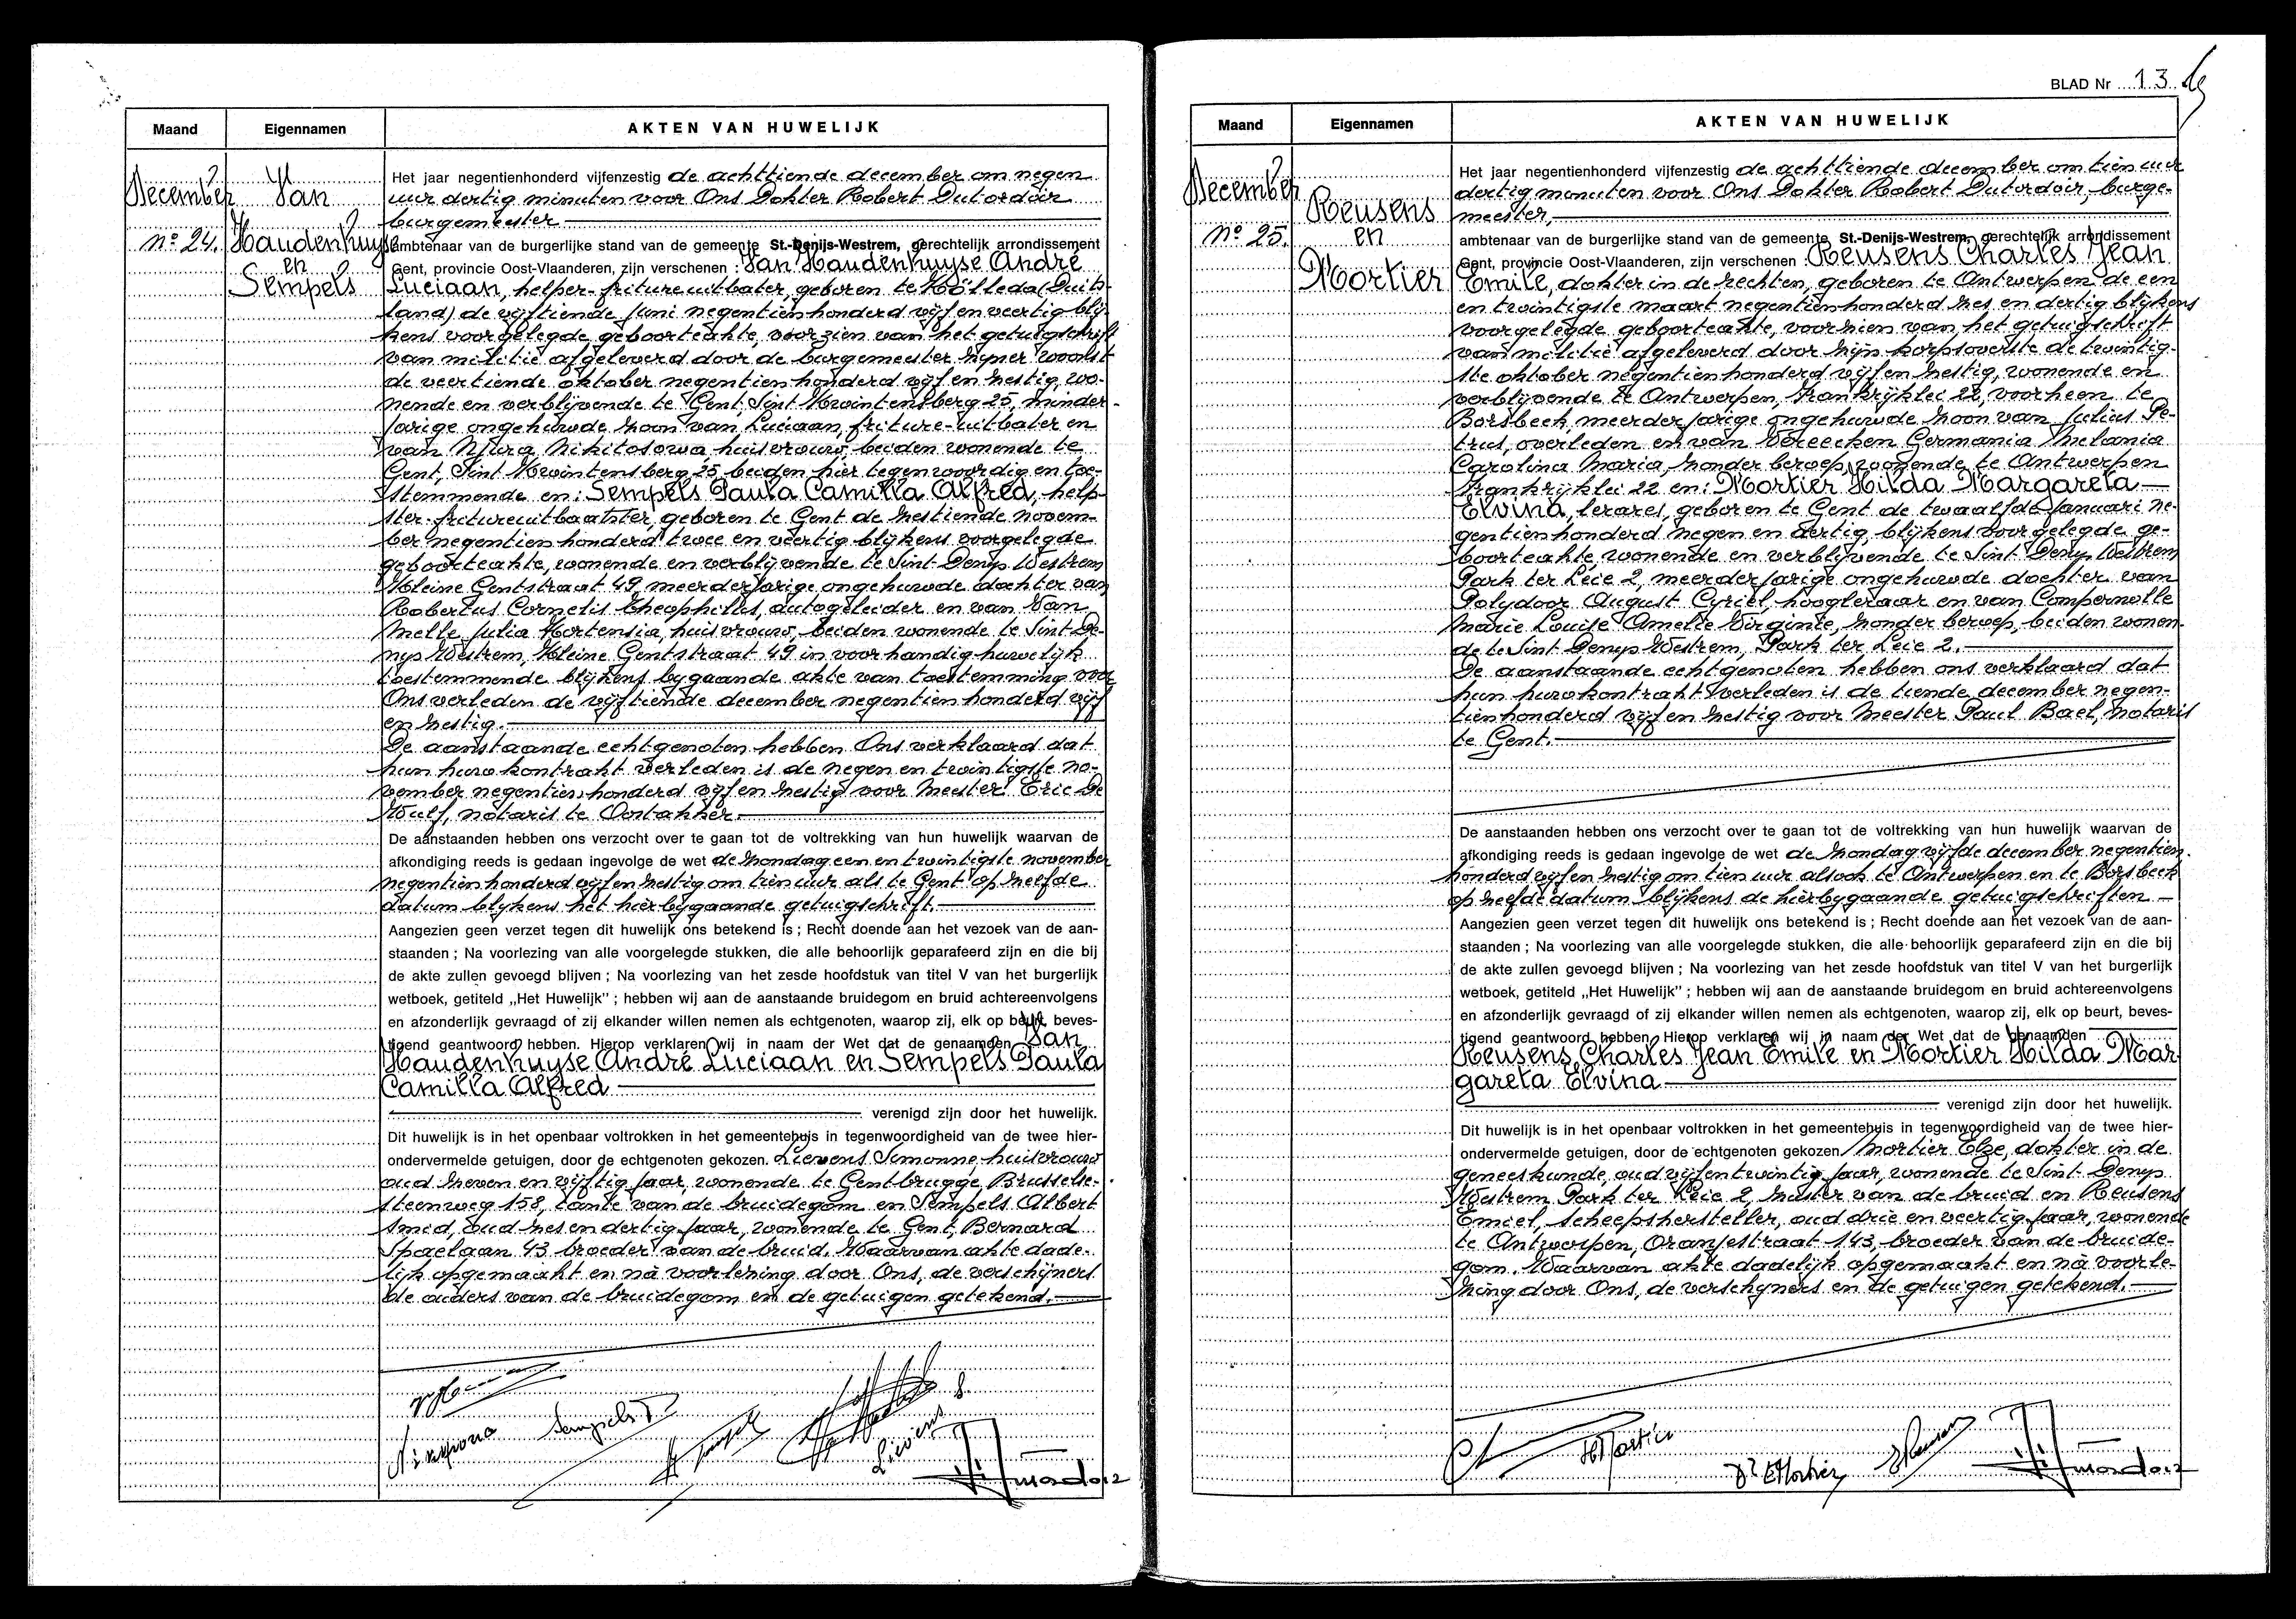 Maand
Eigennamen
AKTEN VAN HUWELIJK
December
nº 24.
Van
Haudenhuyse
en
Sempels
Het jaar negentienhonderd vijfenzestig de achttiende december om negen
uur dertig minuten voor Ons Dokter Robert Dutordoir
burgemeester
ambtenaar van de burgerlijke stand van de gemeente St.-Denijs-Westrem, gerechtelijk arrondissement
Gent, provincie Oost-Vlaanderen, zijn verschenen : Van Haudenhuyse André
Luciaan, helper-fritureuitbater, geboren te Kölleda (Duits-
land) de vijftiende juni negentienhonderd vijf en veertig blij-
kens voorgelegde geboorteakte, voorzien van het getuigschrift
van militie afgeleverd door de burgemeester zijner woonst
de veertiende oktober negentienhonderd vijf en zestig, wo-
nende en verblijvende te Gent, Sint Kwintensberg 25, minder-
jarige ongehuwde zoon van Luciaan, friture-uitbater en
van Njura Nikitosowa, huisvrouw, beiden wonende te
Gent, Sint Kwintensberg 25 beiden hier tegenwoordig en toe-
stemmende en: Sempels Paula Camilla Alfred, help-
ster-fritureuitbaatster, geboren te Gent de zestiende novem-
ber negentienhonderd twee en veertig blijkens voorgelegde
geboorteakte, wonende en verblijvende te Sint Denys Westrem
Kleine Gentstraat 49 meerderjarige ongehuwde dochter van
Robertus Cornelis Theophilus, autogeleider en van Van
Melle Julia Hortensia, huisvrouw, beiden wonende te Sint De-
nys Westrem, Kleine Gentstraat 49 in voorhandig huwelijk
toestemmende blijkens bygaande akte van toestemming voor
Ons verleden de vijftiende december negentienhonderd vijf
en zestig.
De aanstaande echtgenoten hebben Ons verklaard dat
hun huwkontrakt verleden is de negen en twintigste no-
vember negentienhonderd vijf en zestig voor Meester Eric De
Wulf, notaris te Oostakker
De aanstaanden hebben ons verzocht over te gaan tot de voltrekking van hun huwelijk waarvan de
afkondiging reeds is gedaan ingevolge de wet de zondag een en twintigste november
negentienhonderd vijf en zestig om tien uur als te Gent op zelfde
datum blijkens het hierbygaande getuigschrift.
Aangezien geen verzet tegen dit huwelijk ons betekend is ; Recht doende aan het vezoek van de aan-
staanden ; Na voorlezing van alle voorgelegde stukken, die alle behoorlijk geparafeerd zijn en die bij
de akte zullen gevoegd blijven ; Na voorlezing van het zesde hoofdstuk van titel V van het burgerlijk
wetboek, getiteld „Het Huwelijk" ; hebben wij aan de aanstaande bruidegom en bruid achtereenvolgens
en afzonderlijk gevraagd of zij elkander willen nemen als echtgenoten, waarop zij, elk op beurt, beves-
tigend geantwoord hebben. Hierop verklaren wij in naam der Wet dat de genaamden Van
Haudenhuyse André Luciaan en Sempels Paula
Camilla Alfred
verenigd zijn door het huwelijk.
Dit huwelijk is in het openbaar voltrokken in het gemeentehuis in tegenwoordigheid van de twee hier-
ondervermelde getuigen, door de echtgenoten gekozen. Lievens Simonne, huisvrouw
oud zeven en vijftig jaar, wonende te Gentbrugge, Brusselse-
steenweg 158, tante van de bruidegom en Sempels Albert
smid, oud zes en dertig jaar, wonende te Gent, Bernard
Spaelaan 43 broeder van de bruid. Waarvan akte dade-
lijk opgemaakt en nà voorlezing door Ons, de verschijners
de ouders van de bruidegom en de getuigen getekend.
Sempels P
Lievens S.
BLAD Nr 13
Maand
Eigennamen
AKTEN VAN HUWELIJK
December
nº 25.
Reusens
en
Mortier
Het jaar negentienhonderd vijfenzestig de achttiende december om tien uur
dertig minuten voor Ons Dokter Robert Dutordoir, burge-
meester,
ambtenaar van de burgerlijke stand van de gemeente St.-Denijs-Westrem, gerechtelijk arrondissement
Gent, provincie Oost-Vlaanderen, zijn verschenen : Reusens Charles Jean
Emile, dokter in de rechten, geboren te Antwerpen de een
en twintigste maart negentienhonderd zes en dertig blijkens
voorgelegde geboorteakte, voorzien van het getuigschrift
van militie afgeleverd door zijn korpsoverste de twintig-
ste oktober negentienhonderd vijf en zestig, wonende en
verblijvende te Antwerpen, Frankrijklei 22, voorheen te
Borsbeek, meerderjarige ongehuwde zoon van Julius Pe-
trus, overleden en van Vereecken Germania Melania
Carolina Maria, zonder beroep, wonende te Antwerpen
Frankrijklei 22 en: Mortier Hilda Margareta
Elvina, lerares, geboren te Gent de twaalfde januari ne-
gentienhonderd negen en dertig, blijkens voorgelegde ge-
boorteakte, wonende en verblijvende te Sint Denys Westrem
Park ter Leie 2, meerderjarige ongehuwde dochter van
Polydoor August Cyriel, hoogleraar en van Compernolle
Marie Louise Amelie Virginie, zonder beroep, beiden wonen-
de te Sint Denys Westrem, Park ter Leie 2.
De aanstaande echtgenoten hebben ons verklaard dat
hun huwkontrakt verleden is de tiende december negen-
tienhonderd vijf en zestig voor Meester Paul Bael, notaris
te Gent.
De aanstaanden hebben ons verzocht over te gaan tot de voltrekking van hun huwelijk waarvan de
afkondiging reeds is gedaan ingevolge de wet de zondag vijfde december negentien-
honderd vijf en zestig om tien uur alsook te Antwerpen en te Borsbeek
op zelfde datum blijkens de hierbygaande getuigschriften
Aangezien geen verzet tegen dit huwelijk ons betekend is ; Recht doende aan het vezoek van de aan-
staanden ; Na voorlezing van alle voorgelegde stukken, die alle behoorlijk geparafeerd zijn en die bij
de akte zullen gevoegd blijven ; Na voorlezing van het zesde hoofdstuk van titel V van het burgerlijk
wetboek, getiteld „Het Huwelijk" ; hebben wij aan de aanstaande bruidegom en bruid achtereenvolgens
en afzonderlijk gevraagd of zij elkander willen nemen als echtgenoten, waarop zij, elk op beurt, beves-
tigend geantwoord hebben. Hierop verklaren wij in naam der Wet dat de genaamden
Reusens Charles Jean Emile en Mortier Hilda Mar-
gareta Elvina
verenigd zijn door het huwelijk.
Dit huwelijk is in het openbaar voltrokken in het gemeentehuis in tegenwoordigheid van de twee hier-
ondervermelde getuigen, door de echtgenoten gekozen Mortier Elze, dokter in de
geneeskunde, oud vijf en twintig jaar, wonende te Sint Denys
Westrem Park ter Leie 2, zuster van de bruid en Reusens
Emiel, scheepshersteller, oud drie en veertig jaar, wonende
te Antwerpen, Oranjestraat 143, broeder van de bruide-
gom. Waarvan akte dadelijk opgemaakt en nà voorle-
zing door Ons, de verschijners en de getuigen getekend.
HMortier
Dr EMortier
EReusens